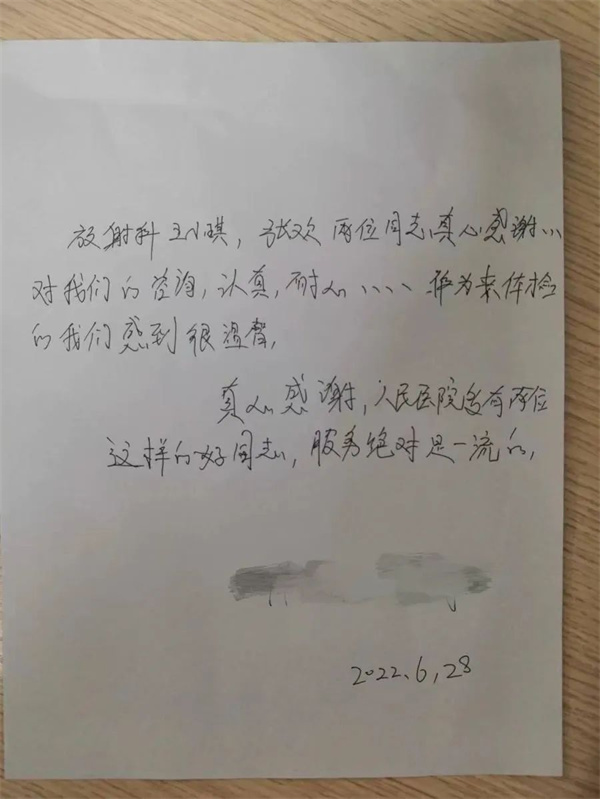 放射科王小琪，张欢两位同志真心感谢...
对我们的咨询，认真，耐心、、、、作为来体检
的我们感到很温馨，
真心感谢，人民医院有两位
这样的好同志，服务绝对是一流的，
2022.6,28